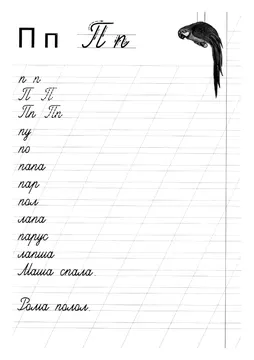 П п П п
п п
П П
Пп Пп
пу
по
папа
пар
пол
лапа
парус
лапша
Маша спала.
Рома полол.